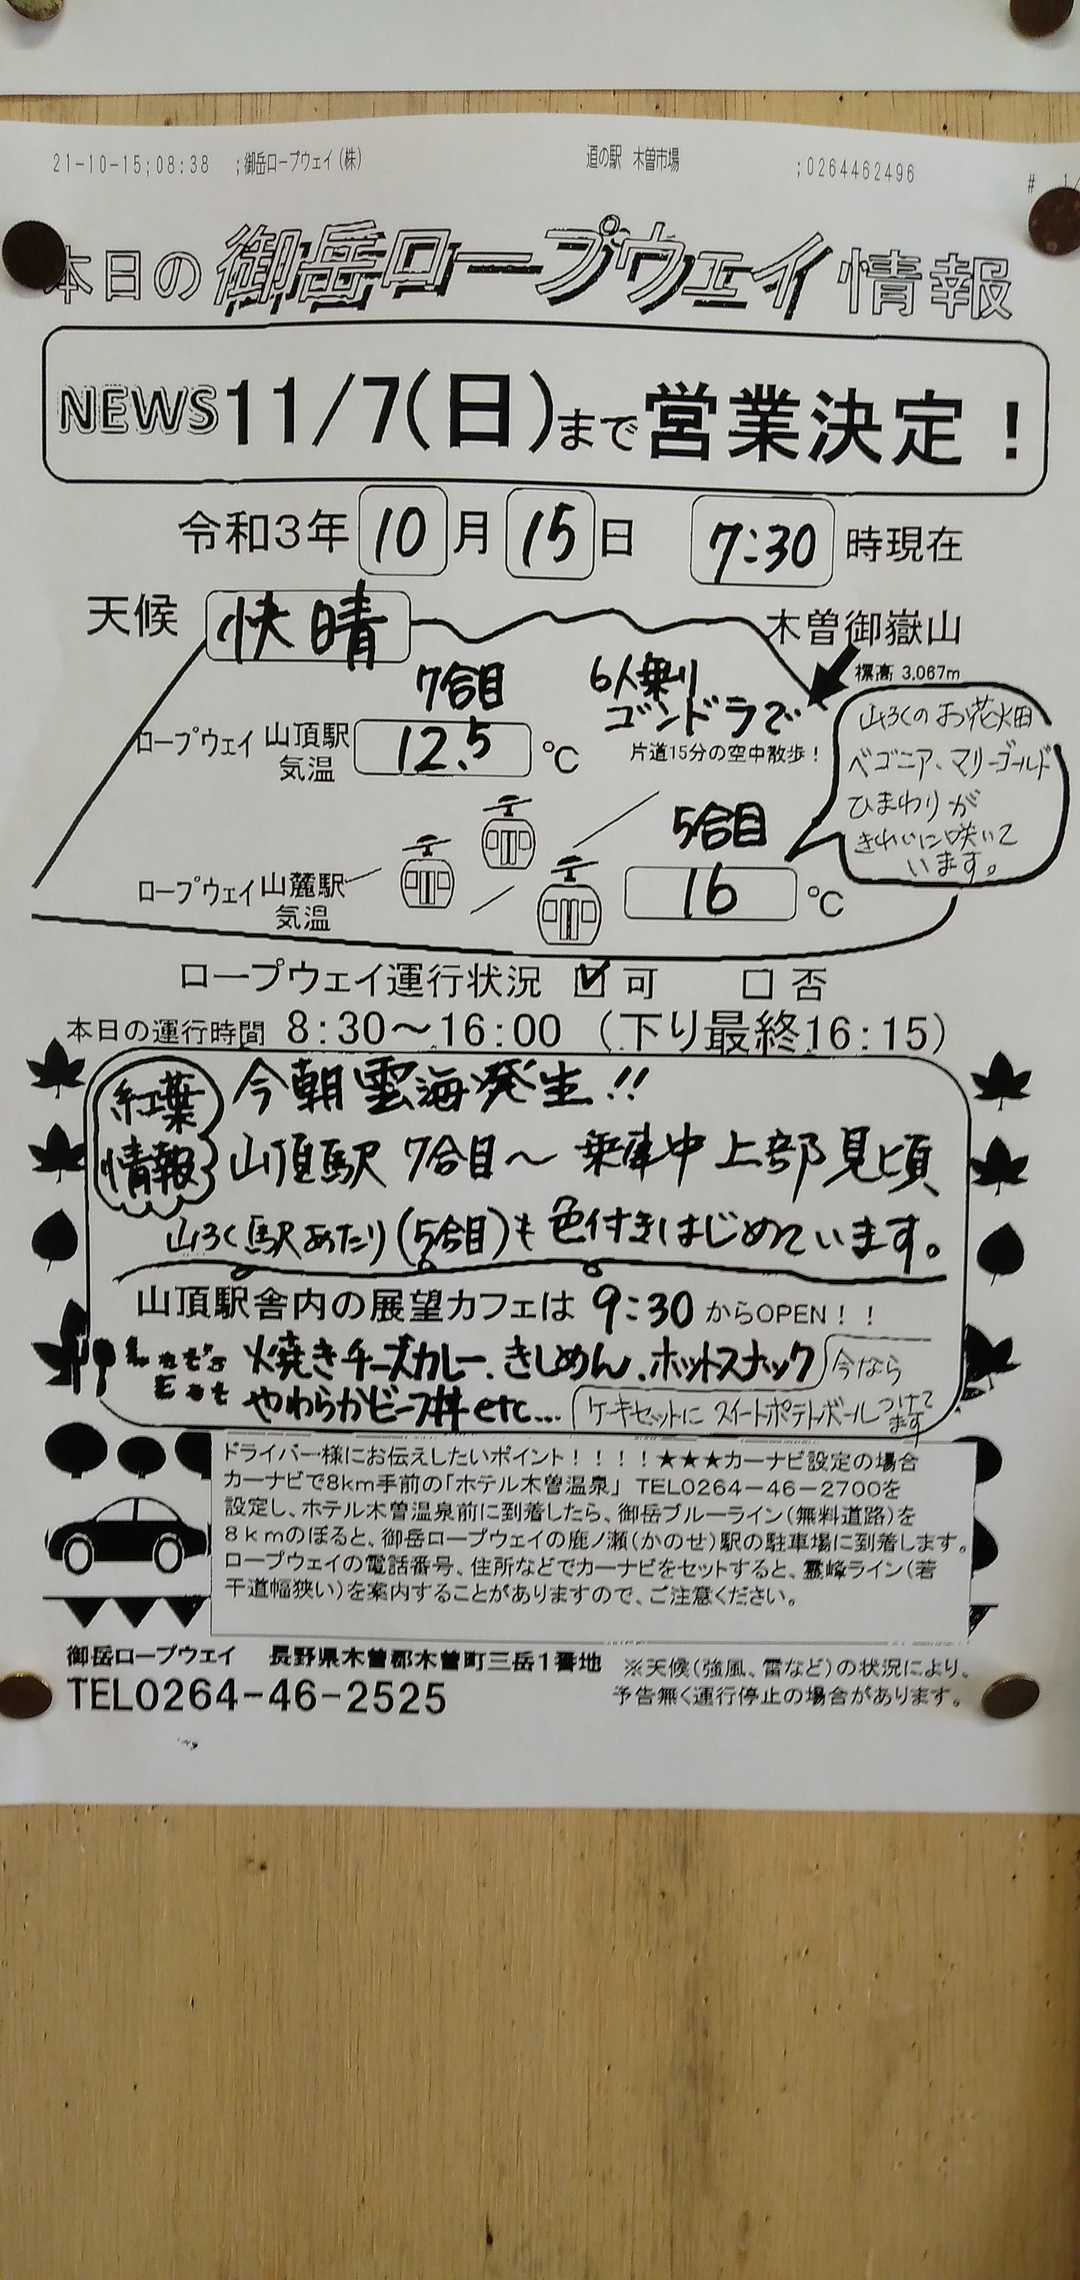 21-10-15;08:38 ;御岳ロープウェイ(株) 道の駅 木曽市場 ;0264462496 # 1/
本日の御岳ロープウェイ情報
NEWS 11/7(日)まで営業決定!
令和3年 10月 15日 7:30 時現在
天候 快晴
木曽御嶽山
標高 3,067m
7合目
6人乗り
ゴンドラで
片道15分の空中散歩!
ロープウェイ 山頂駅 気温 12.5 ℃
山ろくのお花畑
ベゴニア、マリーゴールド
ひまわりが
きれいに咲いて
います。
5合目
ロープウェイ 山麓駅 気温 16 ℃
ロープウェイ運行状況 ☑ 可 □ 否
本日の運行時間 8:30~16:00 (下り最終16:15)
紅葉
情報
今朝雲海発生!!
山頂駅 7合目~ 乗車中 上部見頃
山ろく駅あたり(5合目)も色付きはじめています。
山頂駅舎内の展望カフェは 9:30 からOPEN!!
Let's
Eat
焼きチーズカレー、きしめん、ホットスナック
やわらかビーフ丼 etc...
今なら
ケーキセットに スイートポテトボールつけて
ます
ドライバー様にお伝えしたいポイント!!!!★★★カーナビ設定の場合
カーナビで8km手前の「ホテル木曽温泉」 TEL0264-46-2700を
設定し、ホテル木曽温泉前に到着したら、御岳ブルーライン(無料道路)を
8kmのぼると、御岳ロープウェイの鹿ノ瀬(かのせ)駅の駐車場に到着します。
ロープウェイの電話番号、住所などでカーナビをセットすると、霊峰ライン(若
干道幅狭い)を案内することがありますので、ご注意ください。
御岳ロープウェイ 長野県木曽郡木曽町三岳1番地
TEL0264-46-2525
※天候(強風、雷など)の状況により、
予告無く運行停止の場合があります。